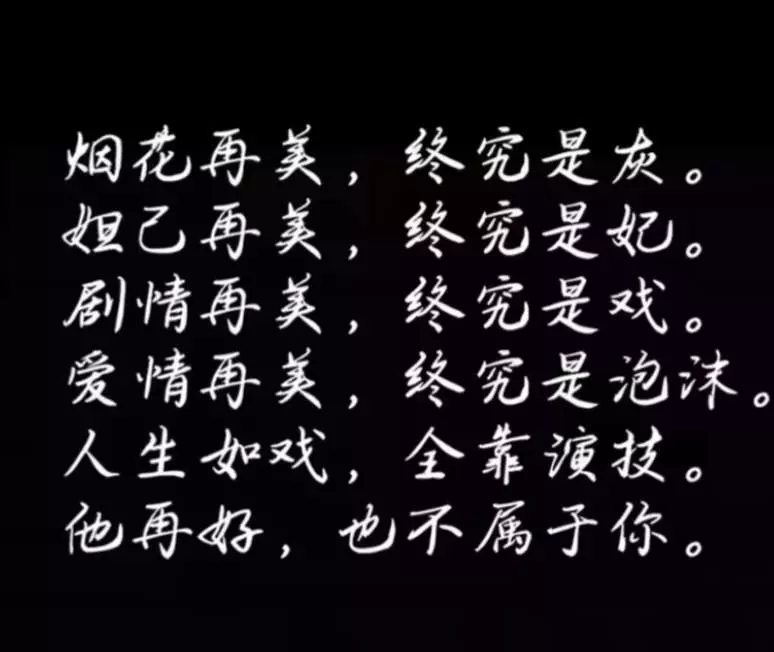 烟花再美，终究是灰。
妲己再美，终究是妃。
剧情再美，终究是戏。
爱情再美，终究是泡沫。
人生如戏，全靠演技。
他再好，也不属于你。